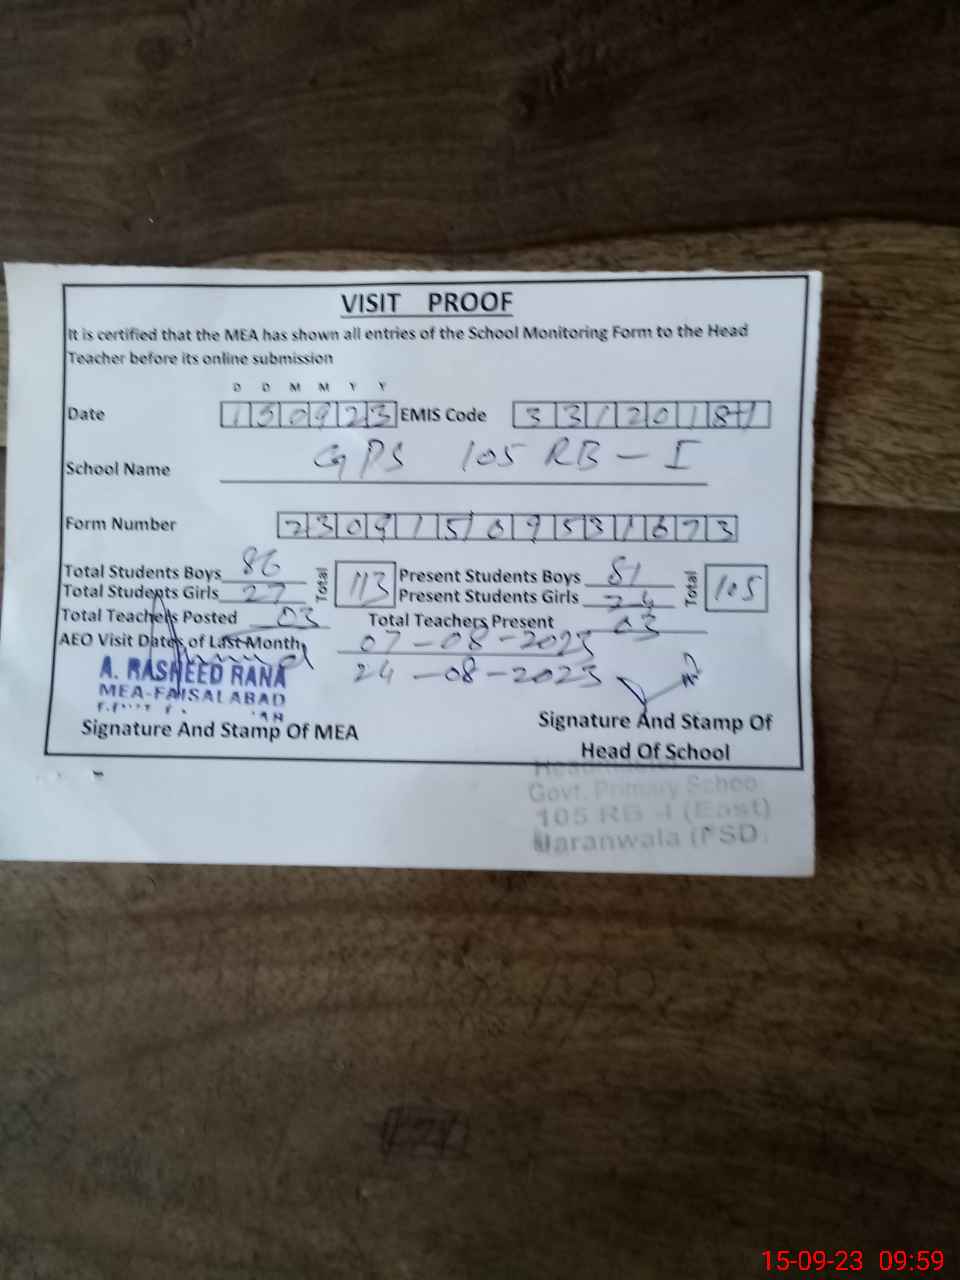 VISIT PROOF
It is certified that the MEA has shown all entries of the School Monitoring Form to the Head
Teacher before its online submission
D D M M Y Y
Date 150923 EMIS Code 33120181
School Name GPS 105 RB - I
Form Number
Total Students Boys 86 Total 113 Present Students Boys 81 Total 105
Total Students Girls 27 Present Students Girls 24
Total Teachers Posted 03 Total Teachers Present 03
AEO Visit Dates of Last Month 07-08-2023
24-08-2023
A. RASHEED RANA
MEA-FAISALABAD
Signature And Stamp Of MEA
Signature And Stamp Of
Head Of School
Govt. Primary School
105 RB -I (East)
Jaranwala (FSD)
15-09-23 09:59